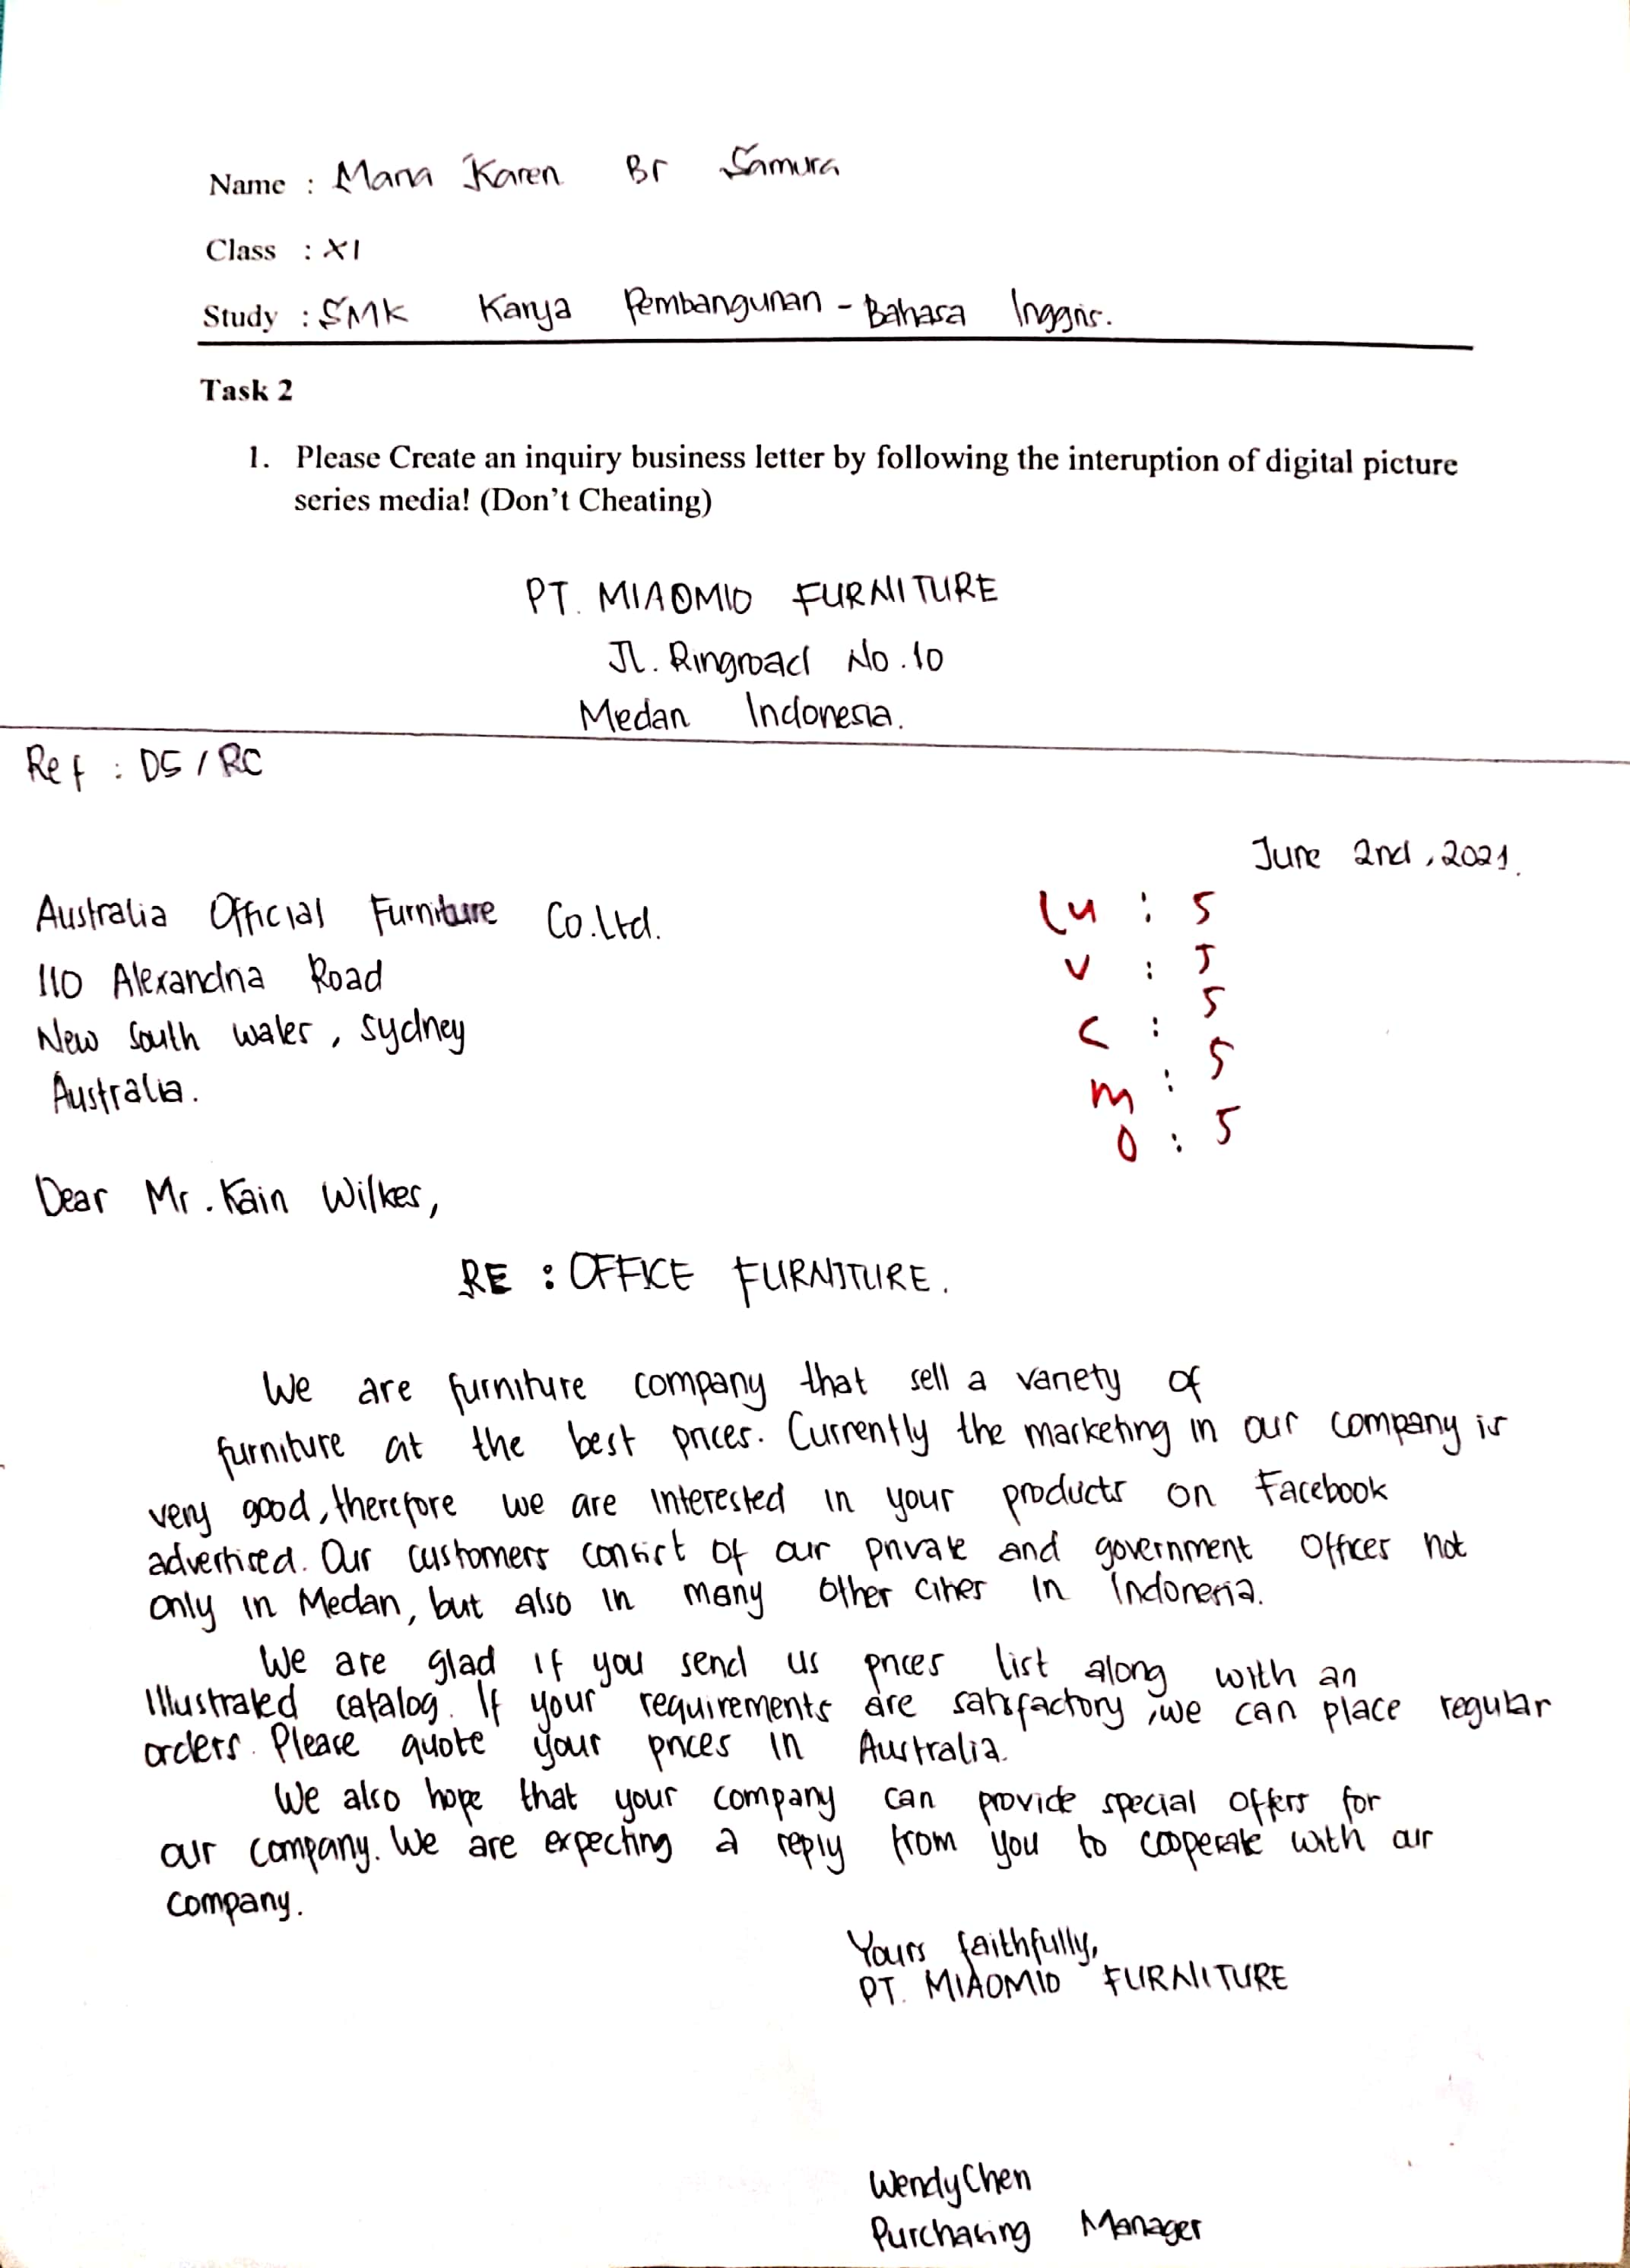 Name : Maria Karen Br Samura
Class : XI
Study : SMK Karya Pembangunan - Bahasa Inggris.
Task 2
1. Please Create an inquiry business letter by following the interuption of digital picture
series media! (Don't Cheating)
PT. MIAOMIO FURNITURE
Jl. Ringroad No.10
Medan Indonesia.
Ref : DS / RC
June 2nd, 2021.
Australia Official Furniture Co.Ltd.
110 Alexandria Road
New South Wales, Sydney
Australia.
Lu : 5
V : 5
C : 5
M : 5
O : 5
Dear Mr. Kain Wilkes,
RE : OFFICE FURNITURE.
We are furniture company that sell a variety of
furniture at the best prices. Currently the marketing in our company is
very good, therefore we are interested in your products on Facebook
advertised. Our customers consist of our private and government offices not
only in Medan, but also in many other cities in Indonesia.
We are glad if you send us prices list along with an
illustrated catalog. If your requirements are satisfactory, we can place regular
orders. Please quote your prices in Australia.
We also hope that your company can provide special offers for
our company. We are expecting a reply from you to cooperate with our
company.
Yours faithfully,
PT. MIAOMIO FURNITURE
Wendy Chen
Purchasing Manager